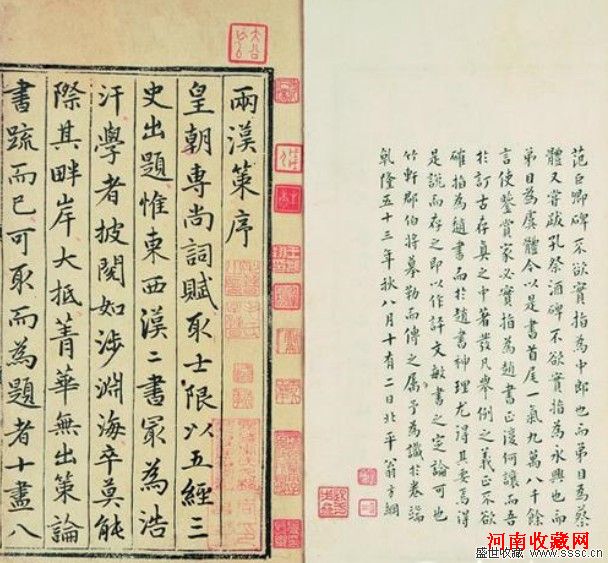 范巨卿碑不欲實指為中郎也而弟目為蔡
體又嘗跋孔祭酒碑不欲實指為永興也而
弟目為虞體今以是書首尾一氣九萬八千餘
言使鑒賞家必實指為趙書正復何讓而吾
於訂古存真之中著發凡舉例之義正不欲
確指為趙書而於趙書神理尤得其要焉得
是說而存之即以作評文敏書之定論可也
竹軒郡伯將摹勒而傳之屬予為識於卷端
乾隆五十三年秋八月十有二日北平翁方綱
兩漢策序
皇朝專尚詞賦取士限以五經三
史出題惟東西漢二書冣為浩
汗學者披閱如涉淵海卒莫能
際其畔岸大抵菁華無出策論
書疏而已可取而為題者十盡八
河南收藏网
盛世收藏 www.sssc.cn